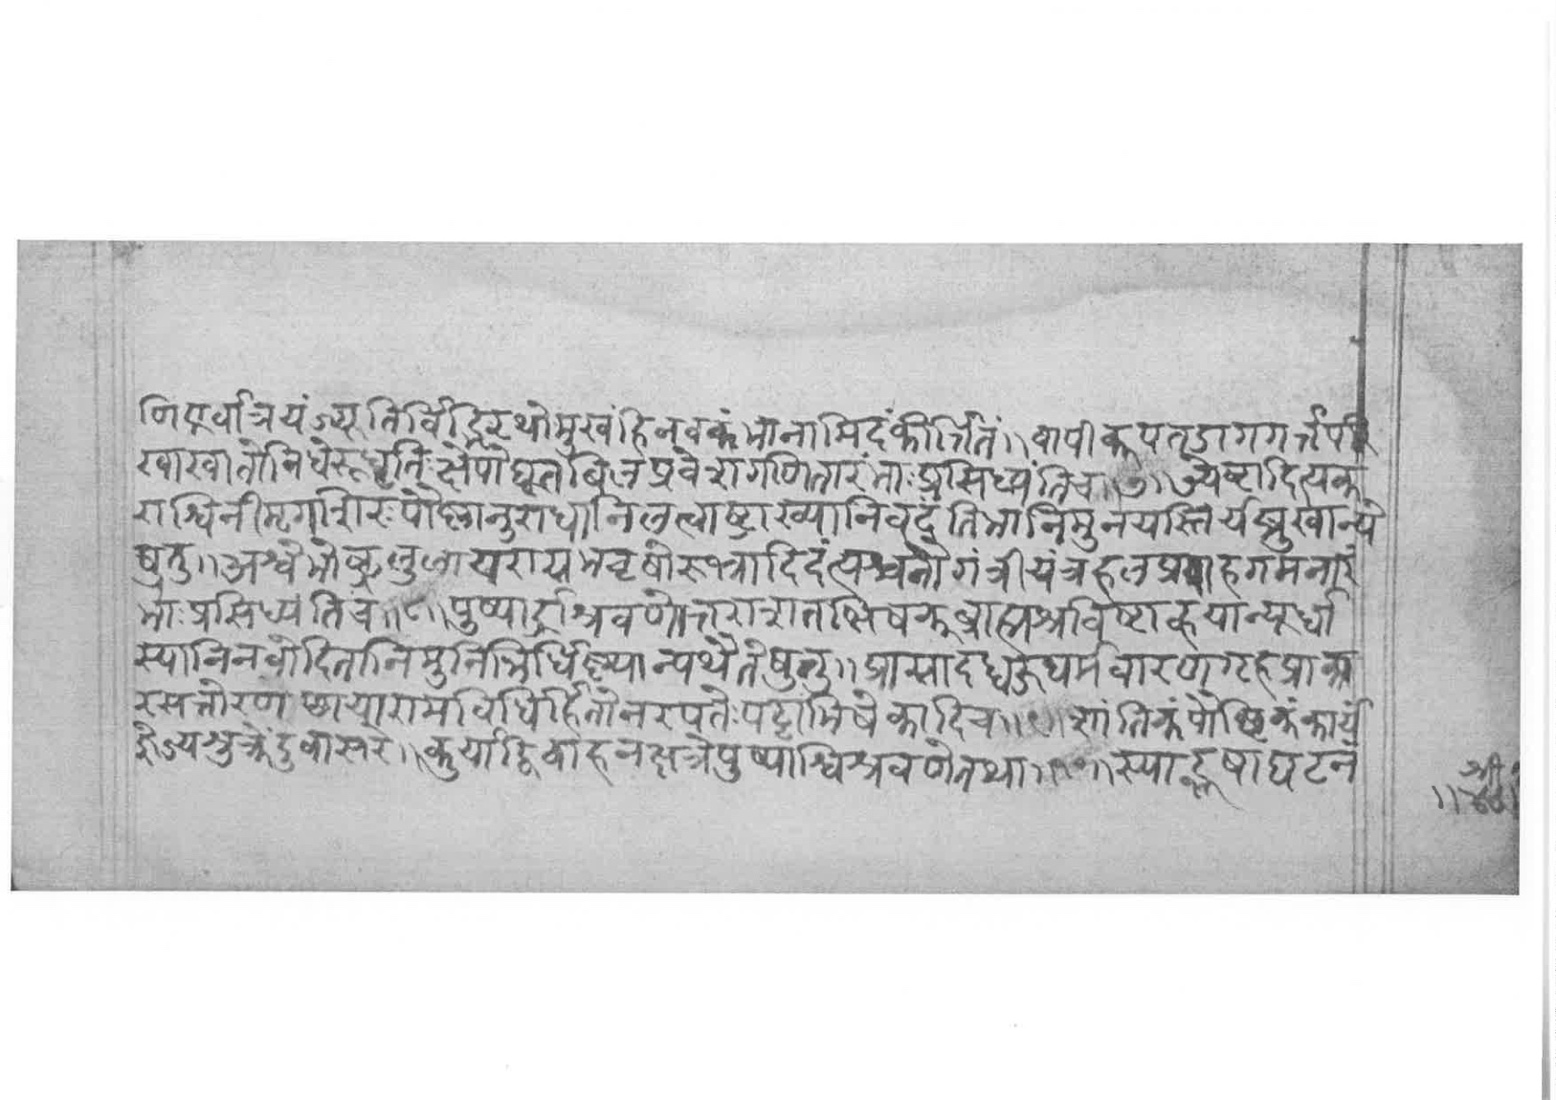 णिपूर्वात्रयंज्यूतिर्विद्भिरथोमुखंहिनवकंभानामिदंकीर्त्तितं॥वापीकूपतडागगर्त्तपरि
खाखातोनिधेरुद्धृतिःक्षेपोद्यूतबिलप्रवेशगणितारंभाःप्रसिध्यंतिच॥७॥ज्येष्टादित्यक
राश्विनीमृगशिरःपौष्णानुराधानिलत्वाष्ट्राख्यानिवदंतिभानिमुनयस्तिर्यङ्मुखान्ये
षुतु॥अश्वेभोष्ट्रलुलायरासभवृषोरभ्रादिदंत्यश्वनौगंत्रीयंत्रहलप्रवाहगमनारं
भाःप्रसिध्यंतिच॥८॥पुष्यार्द्राश्रवणोत्तराशतभिषक्ब्राह्मश्रविष्टाह्वयान्यूर्ध्वा
स्यानिनवोदितानिमुनिभिर्धिष्ण्यान्यथैतेषुतु॥प्रासादध्वजघर्मवारणगृहप्राका
रसत्तोरणछायारामविधिर्हितोनरपतेःपट्टाभिषेकादिच॥९॥शांतिकंपौष्टिकंकार्यं
ज्ञेज्यशुक्रेंदुवासरे॥कुर्याद्विवाहनक्षत्रेपुष्याश्विश्रवणेतथा॥१०॥स्याद्भूषाघटनं